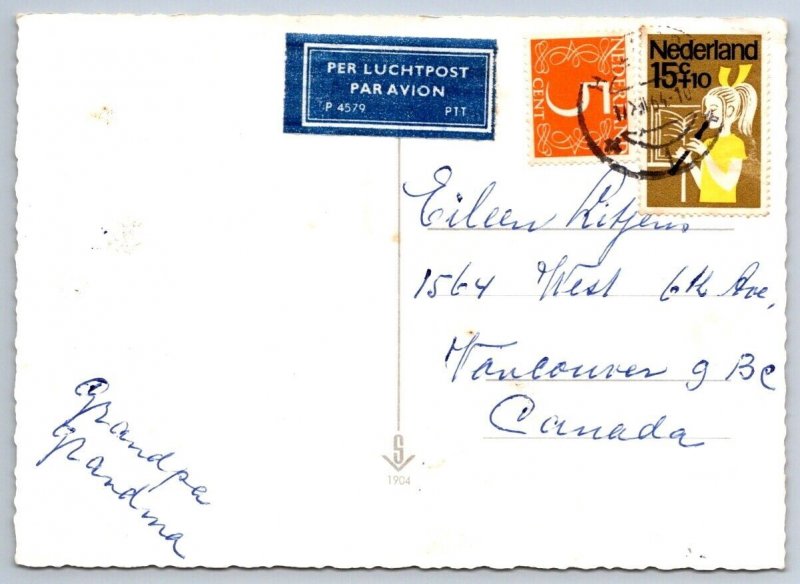 PER LUCHTPOST
PAR AVION
P 4579 PTT
5
CENT
NEDERLAND
Nederland
15 c +10
Eileen
1564 West 6th Ave,
Vancouver 9 BC
Canada
Grandpa
Grandma
S
1904